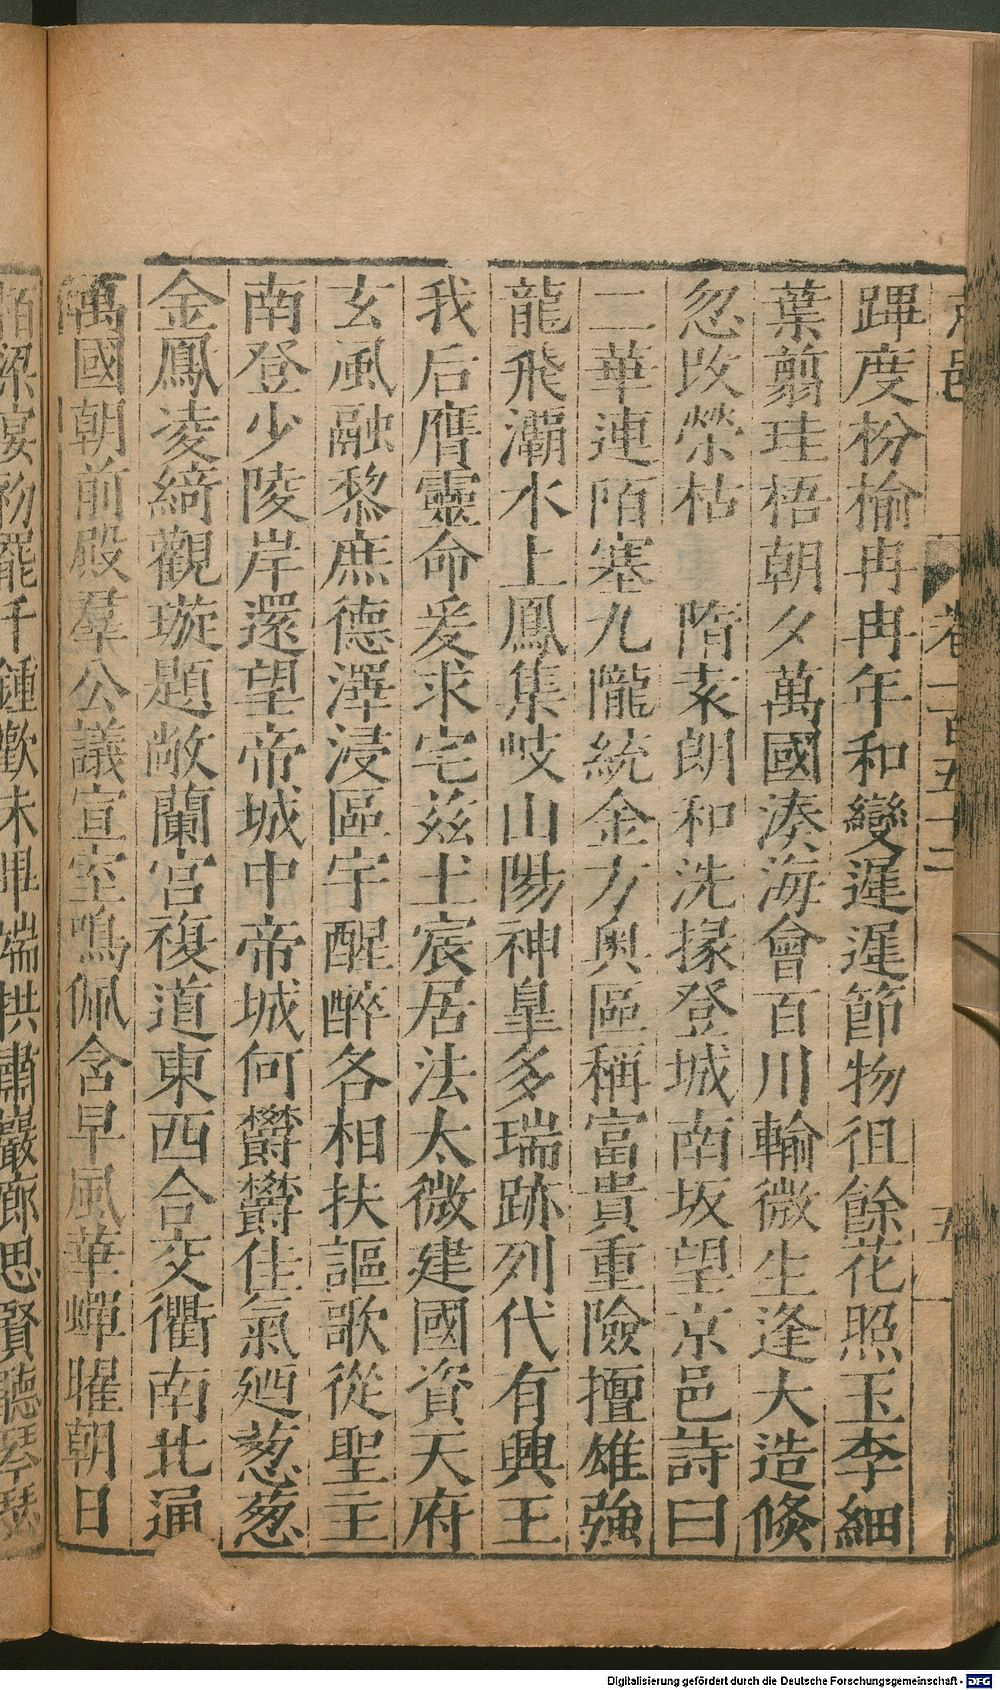 卷一百五十二
五
躧度枌榆冉冉年和變遲遲節物徂餘花照玉李細
葉翦珪梧朝夕萬國湊海會百川輸微生逢大造倏
忽改榮枯 隋袁朗和洗掾登城南坂望京邑詩曰
二華連陌塞九隴統金方奧區稱富貴重險擅雄強
龍飛灞水上鳳集岐山陽神皇多瑞跡列代有興王
我后膺靈命爰求宅茲土宸居法太微建國資天府
玄風融黎庶德澤浸區宇醒醉各相扶謳歌從聖主
南登少陵岸還望帝城中帝城何鬱鬱佳氣廼葱葱
金鳳凌綺觀璇題敞蘭宮複道東西合交衢南北通
萬國朝前殿羣公議宣室鳴佩含早風華蟬曜朝日
栢梁宴初罷千鍾歡未畢端拱肅巖廊思賢聽琴瑟
Digitalisierung gefördert durch die Deutsche Forschungsgemeinschaft - DFG